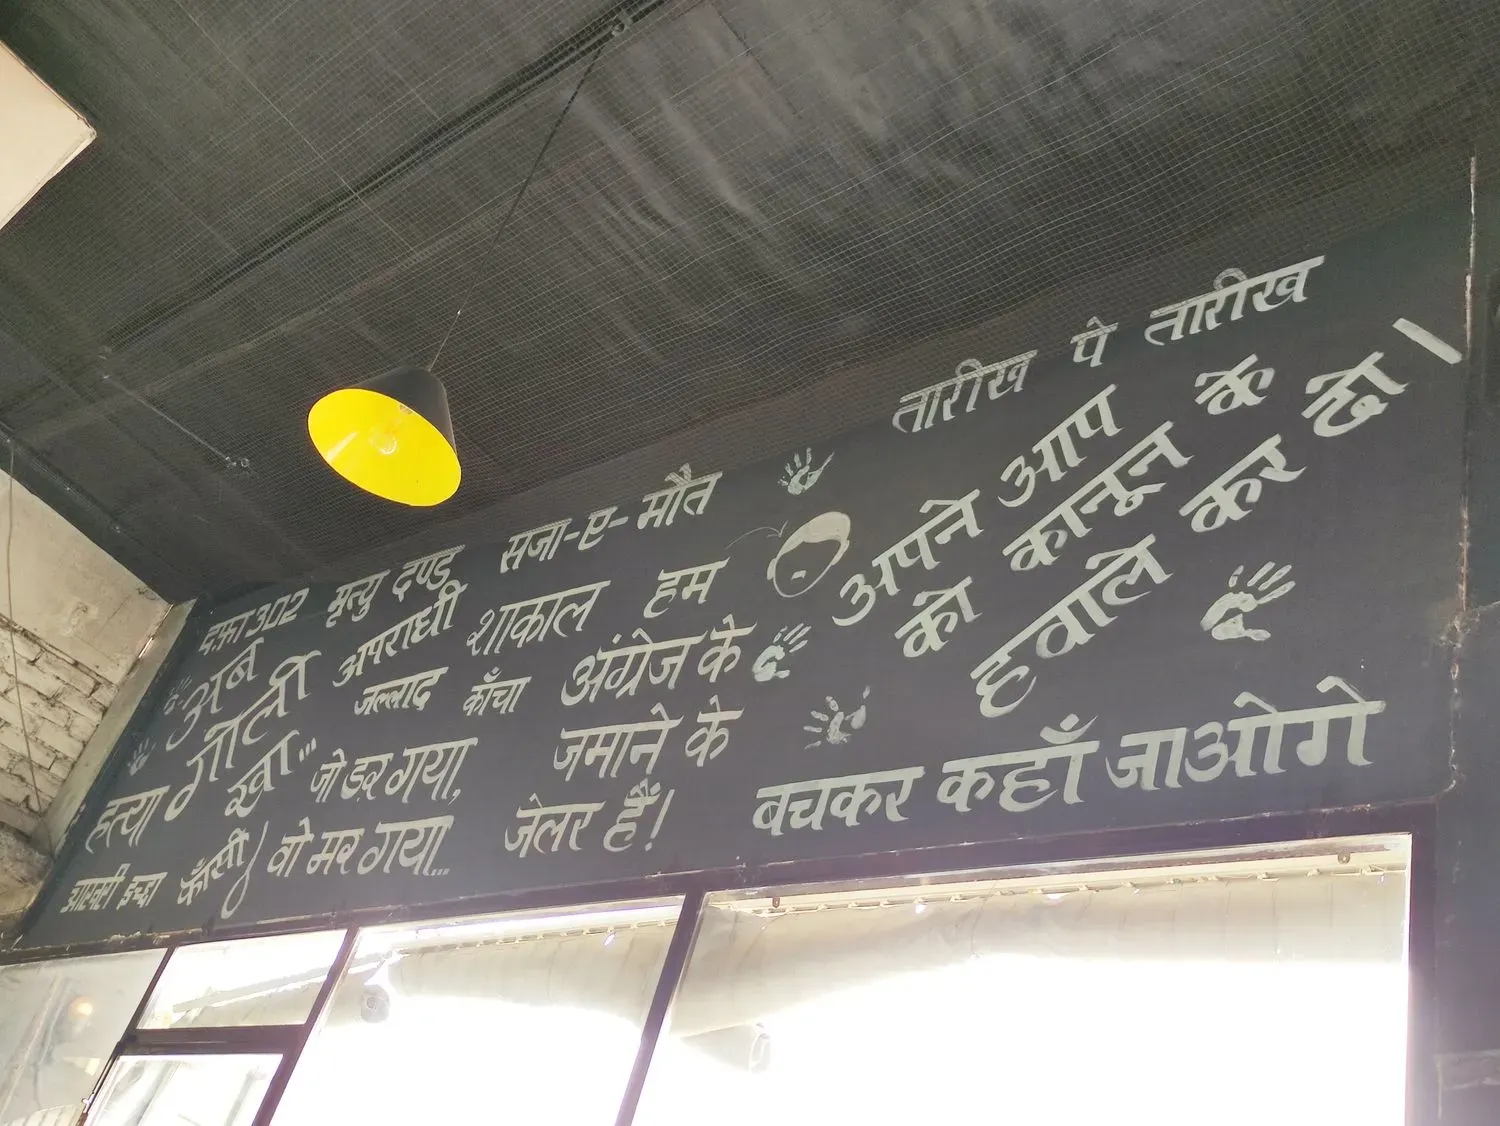 दफ़ा 302 मृत्यु दण्ड सजा-ए-मौत
अब
गोली
खा...
अपराधी शाकाल
जल्लाद काँचा
हत्या
आखरी इच्छा
फाँसी
जो डर गया,
वो मर गया...
हम
अंग्रेज के
जमाने के
जेलर हैं!
तारीख पे तारीख
अपने आप
को कानून के
हवाले कर दो।
बचकर कहाँ जाओगे